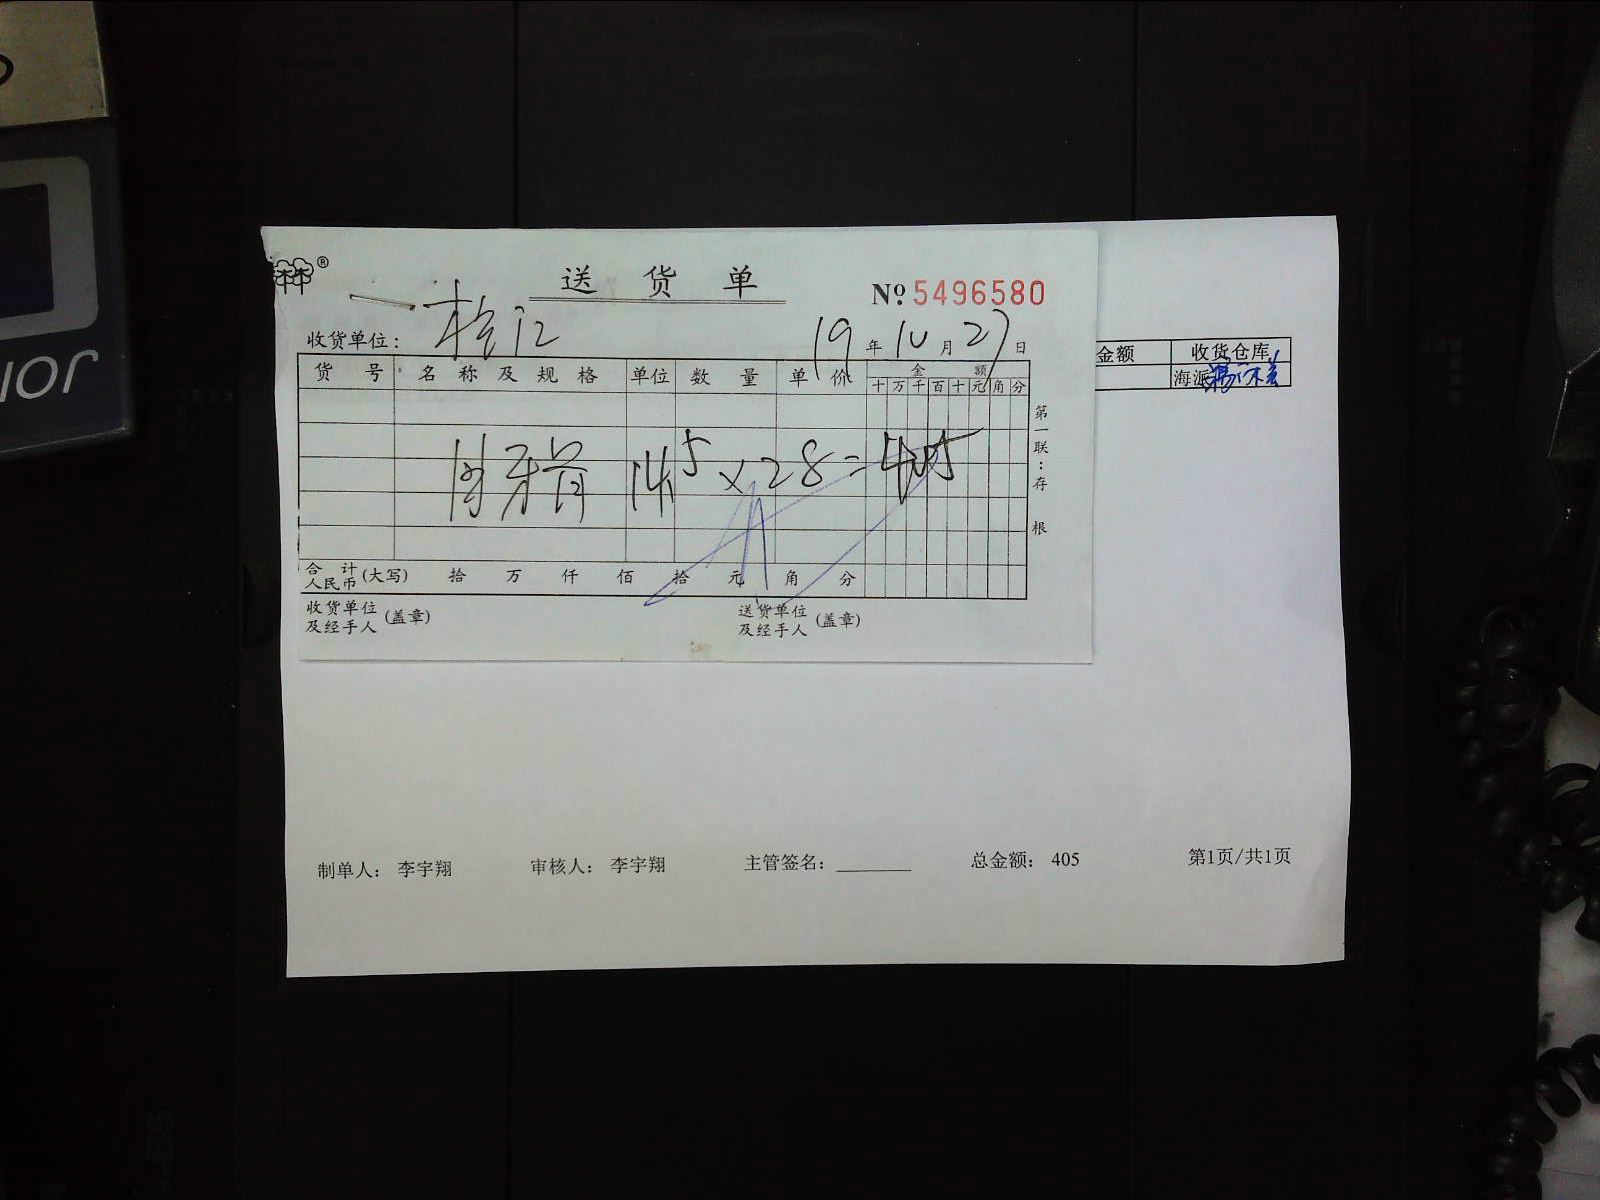 ®
送货单 № 5496580
收货单位: 松江 19年10月27日
金额 收货仓库
货号 名称及规格 单位 数量 单价 金额
十万千百十元角分
海派
14.5 × 28 = 405
第一联:存根
合计人民币(大写) 拾 万 仟 佰 拾 元 角 分
收货单位及经手人(盖章) 送货单位及经手人(盖章)
制单人: 李宇翔 审核人: 李宇翔 主管签名: 总金额: 405 第1页/共1页